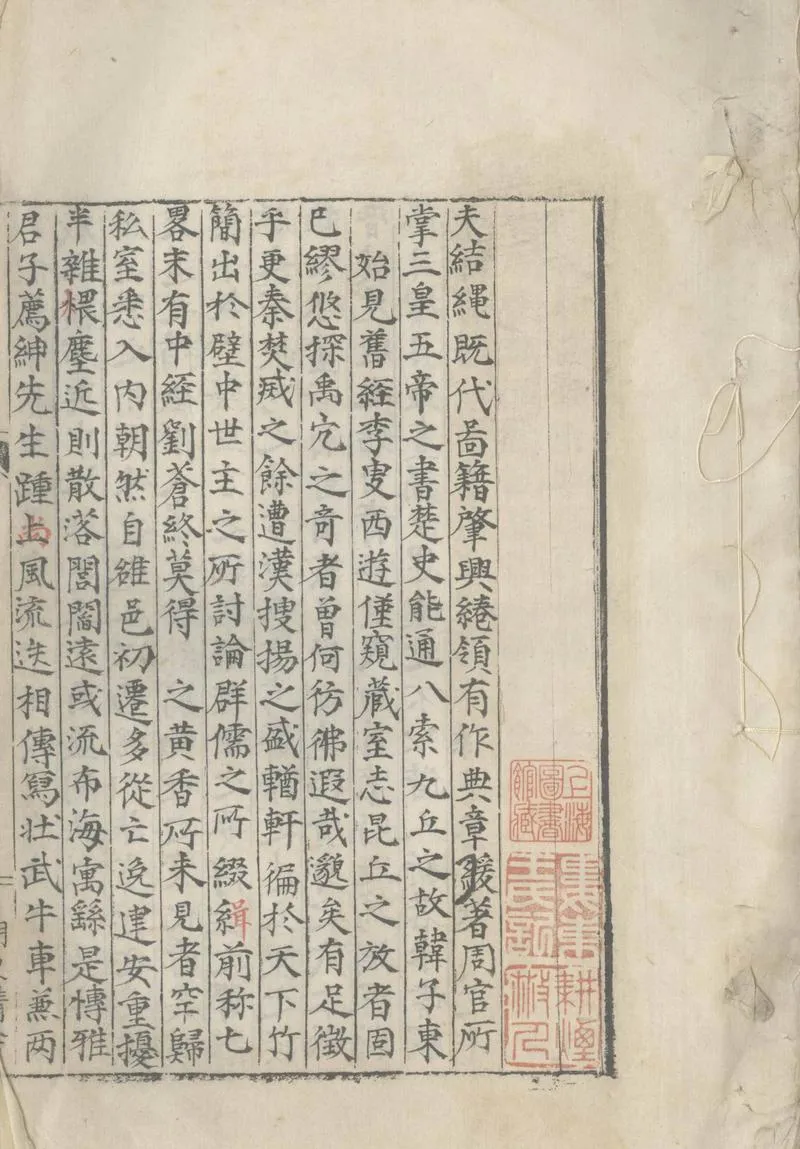 夫結繩既代啚籍肇興綣領有作典章爰著周官所
掌三皇五帝之書楚史能通八索九丘之故韓子東
始見舊經李叟西遊僅窺藏室志昆丘之放者固
已繆悠探禹穴之奇者曾何彷彿遐哉邈矣有足徵
乎更秦焚烕之餘遭漢搜揚之盛輶軒徧於天下竹
簡出於壁中世主之所討論群儒之所綴緝前称七
畧末有中經劉蒼終莫得 之黄香所未見者罕歸
私室悉入内朝然自雒邑初遷多從亡逸建安重擾
半雜榠塵近則散落誾闔遠或流布海寓繇是愽雅
君子薦紳先生踵尚風流迭相傳寫壯武牛車兼兩
上海
圖書
館藏